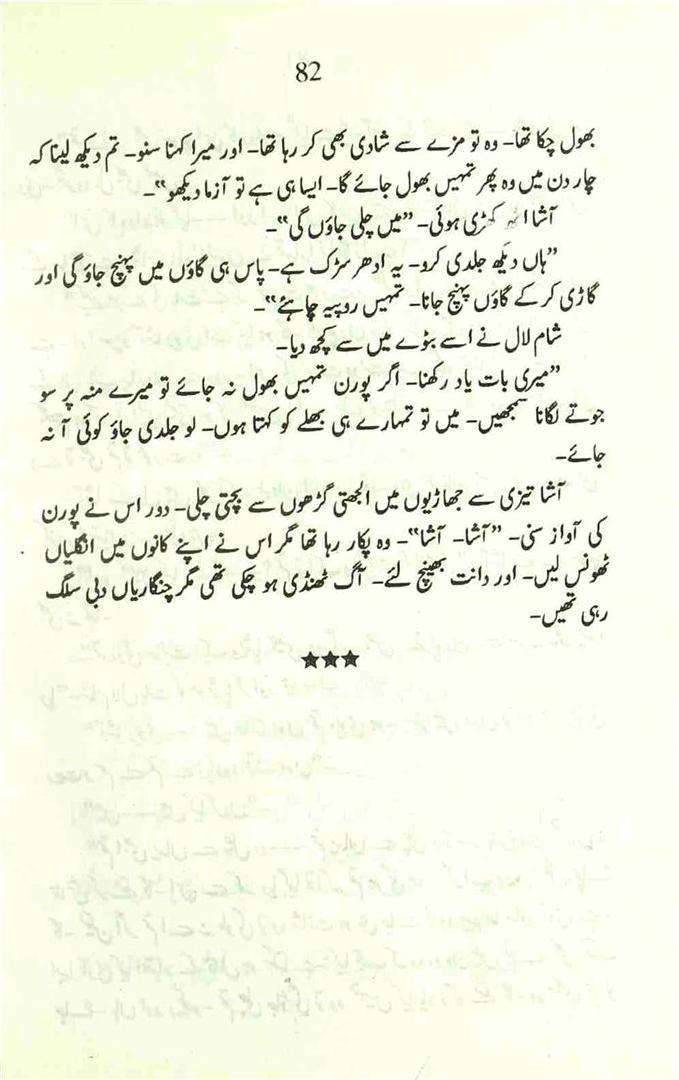 82
بھول چکا تھا۔ وہ تو مزے سے شادی بھی کر رہا تھا۔ اور میرا کہنا سنو۔ تم دیکھ لینا کہ
چار دن میں وہ پھر تمہیں بھول جائے گا۔ ایسا ہی ہے تو آزما دیکھو"۔
آشا اٹھ کھڑی ہوئی۔ "میں چلی جاؤں گی"۔
"ہاں دیکھ جلدی کرو۔ یہ ادھر سڑک ہے۔ پاس ہی گاؤں میں پہنچ جاؤ گی اور
گاڑی کر کے گاؤں پہنچ جانا۔ تمہیں روپیہ چاہئے"۔
شام لال نے اسے بٹوے میں سے کچھ دیا۔
"میری بات یاد رکھنا۔ اگر پورن تمہیں بھول نہ جائے تو میرے منہ پر سو
جوتے لگانا سمجھیں۔ میں تو تمہارے ہی بھلے کو کہتا ہوں۔ لو جلدی جاؤ کوئی آ نہ
جائے۔
آشا تیزی سے جھاڑیوں میں الجھتی گڑھوں سے بچتی چلی۔ دور اس نے پورن
کی آواز سنی۔ "آشا۔ آشا"۔ وہ پکار رہا تھا مگر اس نے اپنے کانوں میں انگلیاں
ٹھونس لیں۔ اور دانت بھینچ لئے۔ آگ ٹھنڈی ہو چکی تھی مگر چنگاریاں دبی سلگ
رہی تھیں۔
★★★